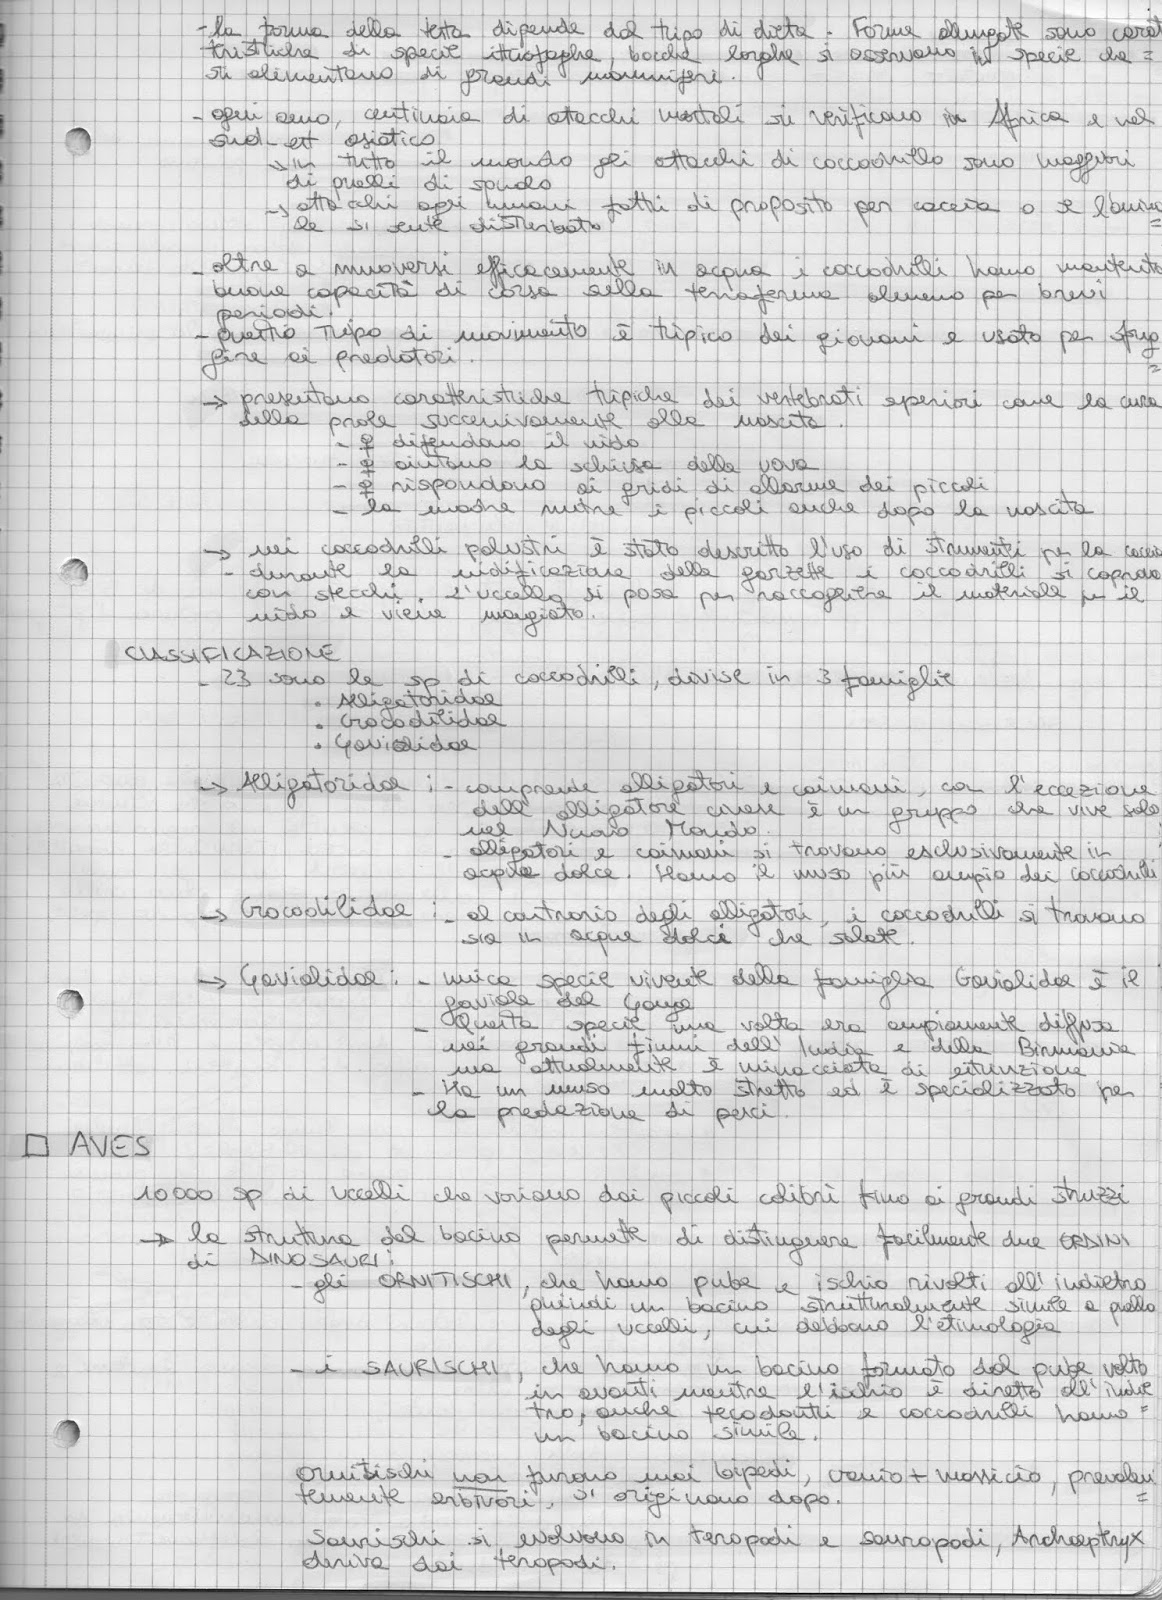 - la forma della testa dipende dal tipo di dieta. Forme allungate sono carat
teristiche di specie ittiofaghe, bocche larghe si osservano in specie che =
si alimentano di grandi mammiferi.
- ogni anno, centinaia di attacchi mortali si verificano in Africa e nel
sud-est asiatico
→ in tutto il mondo gli attacchi di coccodrillo sono maggiori
di quelli di squalo
→ attacchi agli umani fatti di proposito per caccia o se l'anima
le si sente disturbato =
- oltre a muoversi efficacemente in acqua i coccodrilli hanno mantenuto
buone capacità di corsa sulla terraferma almeno per brevi
periodi.
- questo tipo di movimento è tipico dei giovani e usato per sfug
gire ai predatori. =
→ presentano caratteristiche tipiche dei vertebrati superiori come la cura
della prole successivamente alla nascita.
- ♀ difendono il nido
- ♀ aiutano la schiusa delle uova
- ♀ rispondono ai gridi di allarme dei piccoli
- la madre nutre i piccoli anche dopo la nascita
→ nei coccodrilli palustri è stato descritto l'uso di strumenti per la caccia
- durante la nidificazione delle garzette i coccodrilli si coprono
con stecchi. L'uccello si posa per raccogliere il materiale per il
nido e viene mangiato.
CLASSIFICAZIONE
- 23 sono le sp di coccodrilli, divise in 3 famiglie
• Alligatoridae
• Crocodilidae
• Gavialidae
→ Alligatoridae : - comprende alligatori e caimani, con l'eccezione
dell'alligatore cinese è un gruppo che vive solo
nel Nuovo Mondo.
- alligatori e caimani si trovano esclusivamente in
acque dolce. Hanno il muso più ampio dei coccodrilli
→ Crocodilidae : - al contrario degli alligatori, i coccodrilli si trovano
sia in acque dolci che salate.
→ Gavialidae : - unica specie vivente della famiglia Gavialidae è il
gaviale del Gange
- Questa specie una volta era ampiamente diffusa
nei grandi fiumi dell'India e della Birmania
ma attualmente è minacciata di estinzione
- Ha un muso molto stretto ed è specializzato per
la predazione di pesci.
□ AVES
10000 sp di uccelli che variano dai piccoli colibrì fino ai grandi struzzi
→ la struttura del bacino permette di distinguere facilmente due ORDINI
di DINOSAURI:
- gli ORNITISCHI, che hanno pube e ischio rivolti all'indietro
quindi un bacino strutturalmente simile a quello
degli uccelli, cui debbono l'etimologia
- i SAURISCHI, che hanno un bacino formato dal pube volto
in avanti mentre l'ischio è diretto all'indie
tro, anche tecodonti e coccodrilli hanno =
un bacino simile.
Ornitischi non furono mai bipedi, cranio + massiccio, prevalen
temente erbivori, si originano dopo. =
Saurischi si evolvono in teropodi e sauropodi, Archaeptryx
deriva dai teropodi.